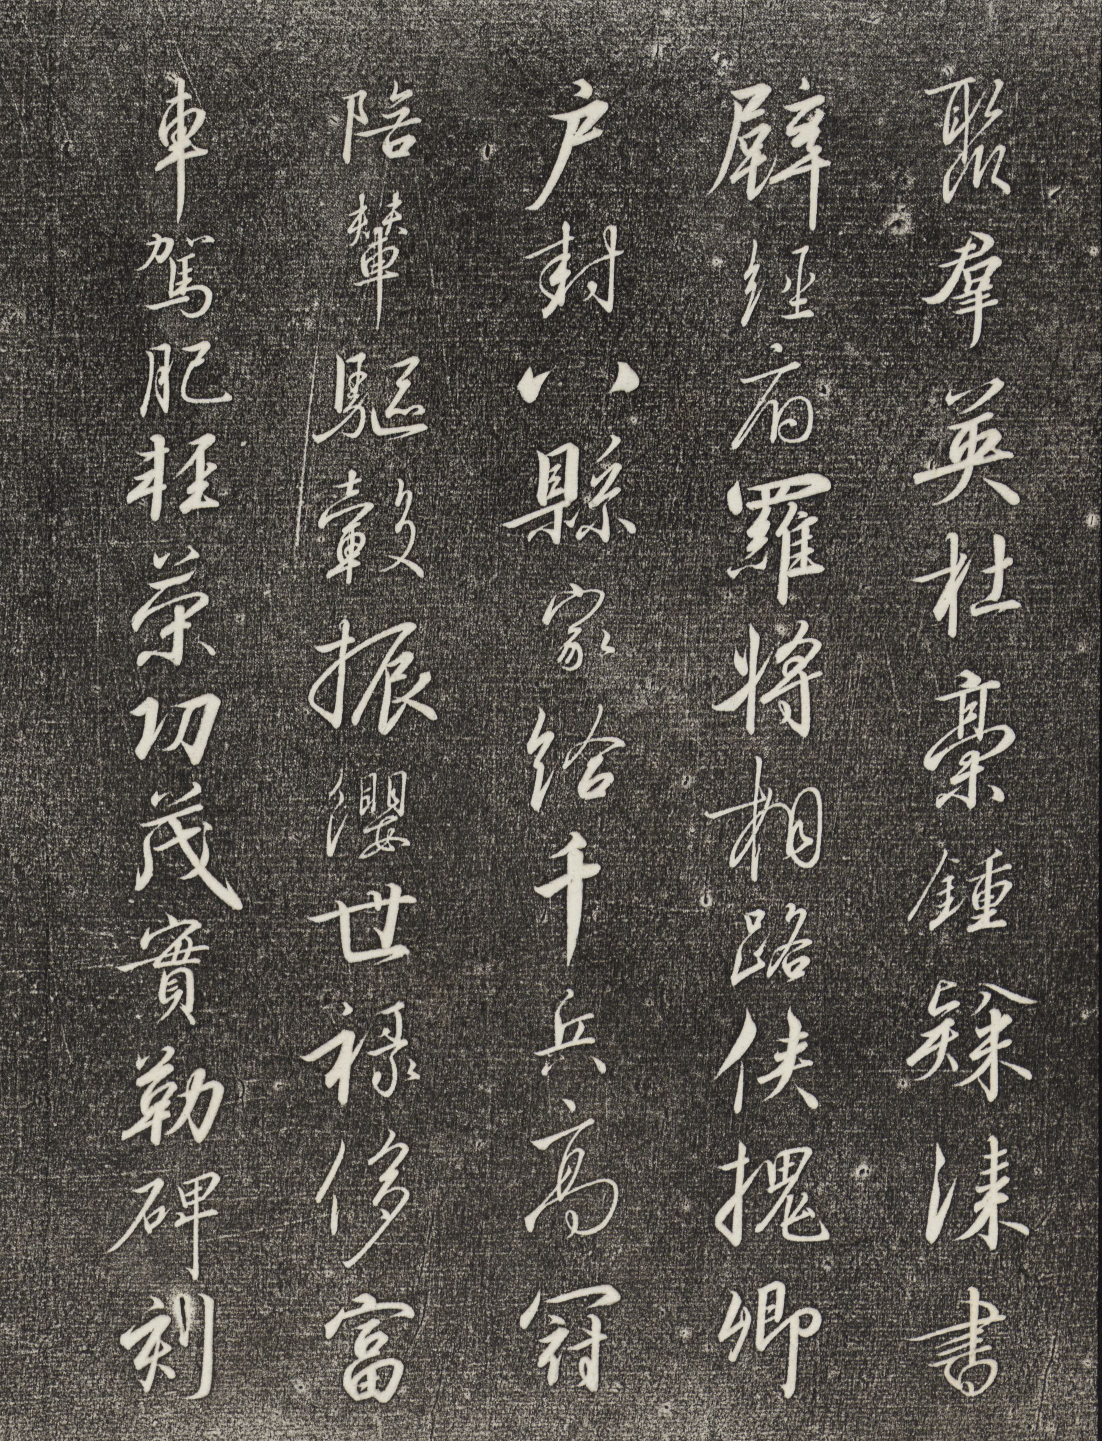 聚羣英杜稾鍾隸漆書
壁經府羅將相路俠槐卿
户封八縣家給千兵高冠
陪輦驅轂振纓世祿侈富
車駕肥輕策功茂實勒碑刻